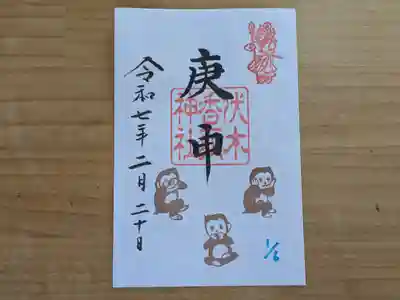 庚申
伏木
香取
神社
令和七年二月二十日
1/6